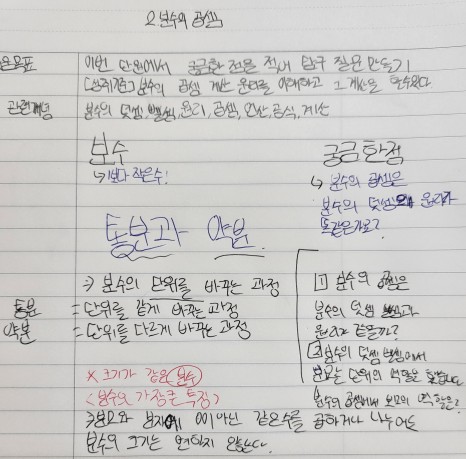 2 분수의 곱셈
이번 단원에서 궁금한 점을 적어 탐구 질문 만들기
분수의 곱셈 계산 원리를 이해하고 그 계산을 할 수 있다
관련개념 분수의 덧셈, 뺄셈, 원리, 곱셈, 연산, 공식, 계산
분수
↳ 1보다 작은수!
궁금한점
↳ 분수의 곱셈은
분수의 덧셈의 원리가
똑같은가요?
통분과 약분
→ 분수의 단위를 바꾸는 과정
통분 = 단위를 같게 바꾸는 과정
약분 = 단위를 다르게 바꾸는 과정
1 분수의 곱셈은
분수의 덧셈 뺄셈과
원리가 같을까?
2 분수의 덧셈 뺄셈에서
분모는 단위의 역할을
분수의 곱셈에서 분모의 역할은?
* 크기가 같은 분수
<분수의 가장 큰 특징>
→ 분모와 분자에 0이 아닌 같은 수를 곱하거나 나누어도
분수의 크기는 변하지 않는다.